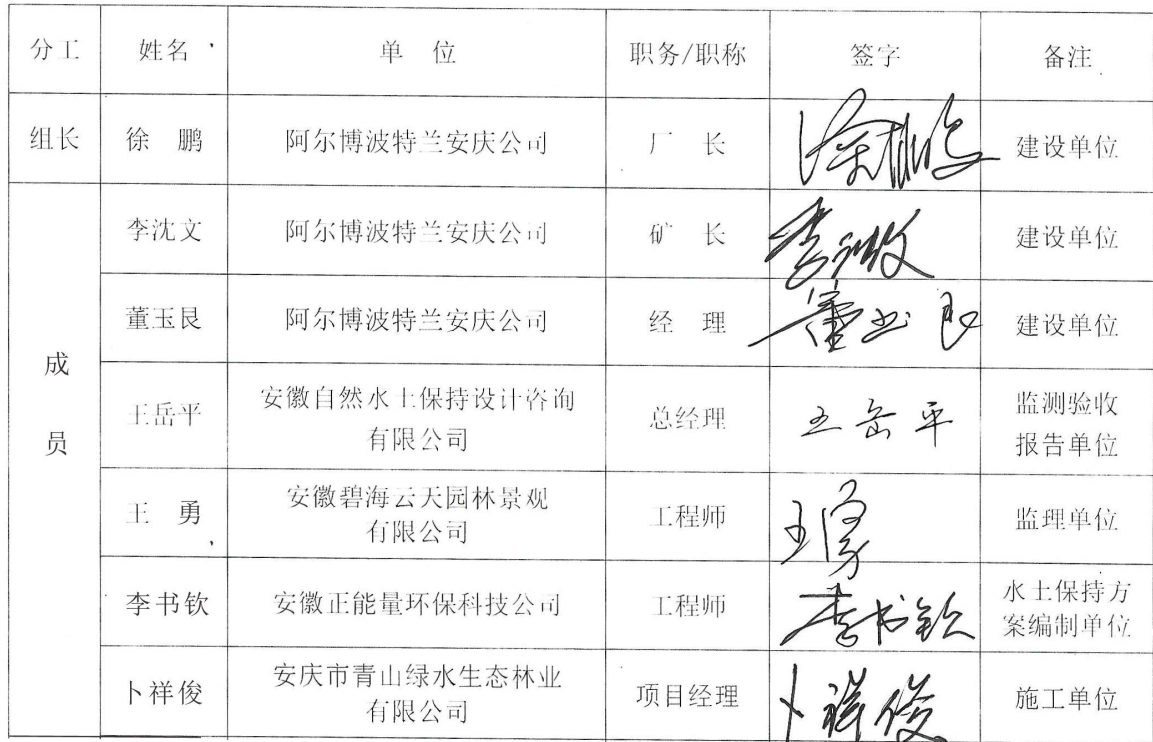 分工 姓名 单 位 职务/职称 签字 备注
组长 徐 鹏 阿尔博波特兰安庆公司 厂 长 徐鹏 建设单位
成员
李沈文 阿尔博波特兰安庆公司 矿 长 李沈文 建设单位
董玉良 阿尔博波特兰安庆公司 经 理 董玉良 建设单位
王岳平 安徽自然水土保持设计咨询
有限公司 总经理 王岳平 监测验收
报告单位
王 勇 安徽碧海云天园林景观
有限公司 工程师 王勇 监理单位
李书钦 安徽正能量环保科技公司 工程师 李书钦 水土保持方
案编制单位
卜祥俊 安庆市青山绿水生态林业
有限公司 项目经理 卜祥俊 施工单位